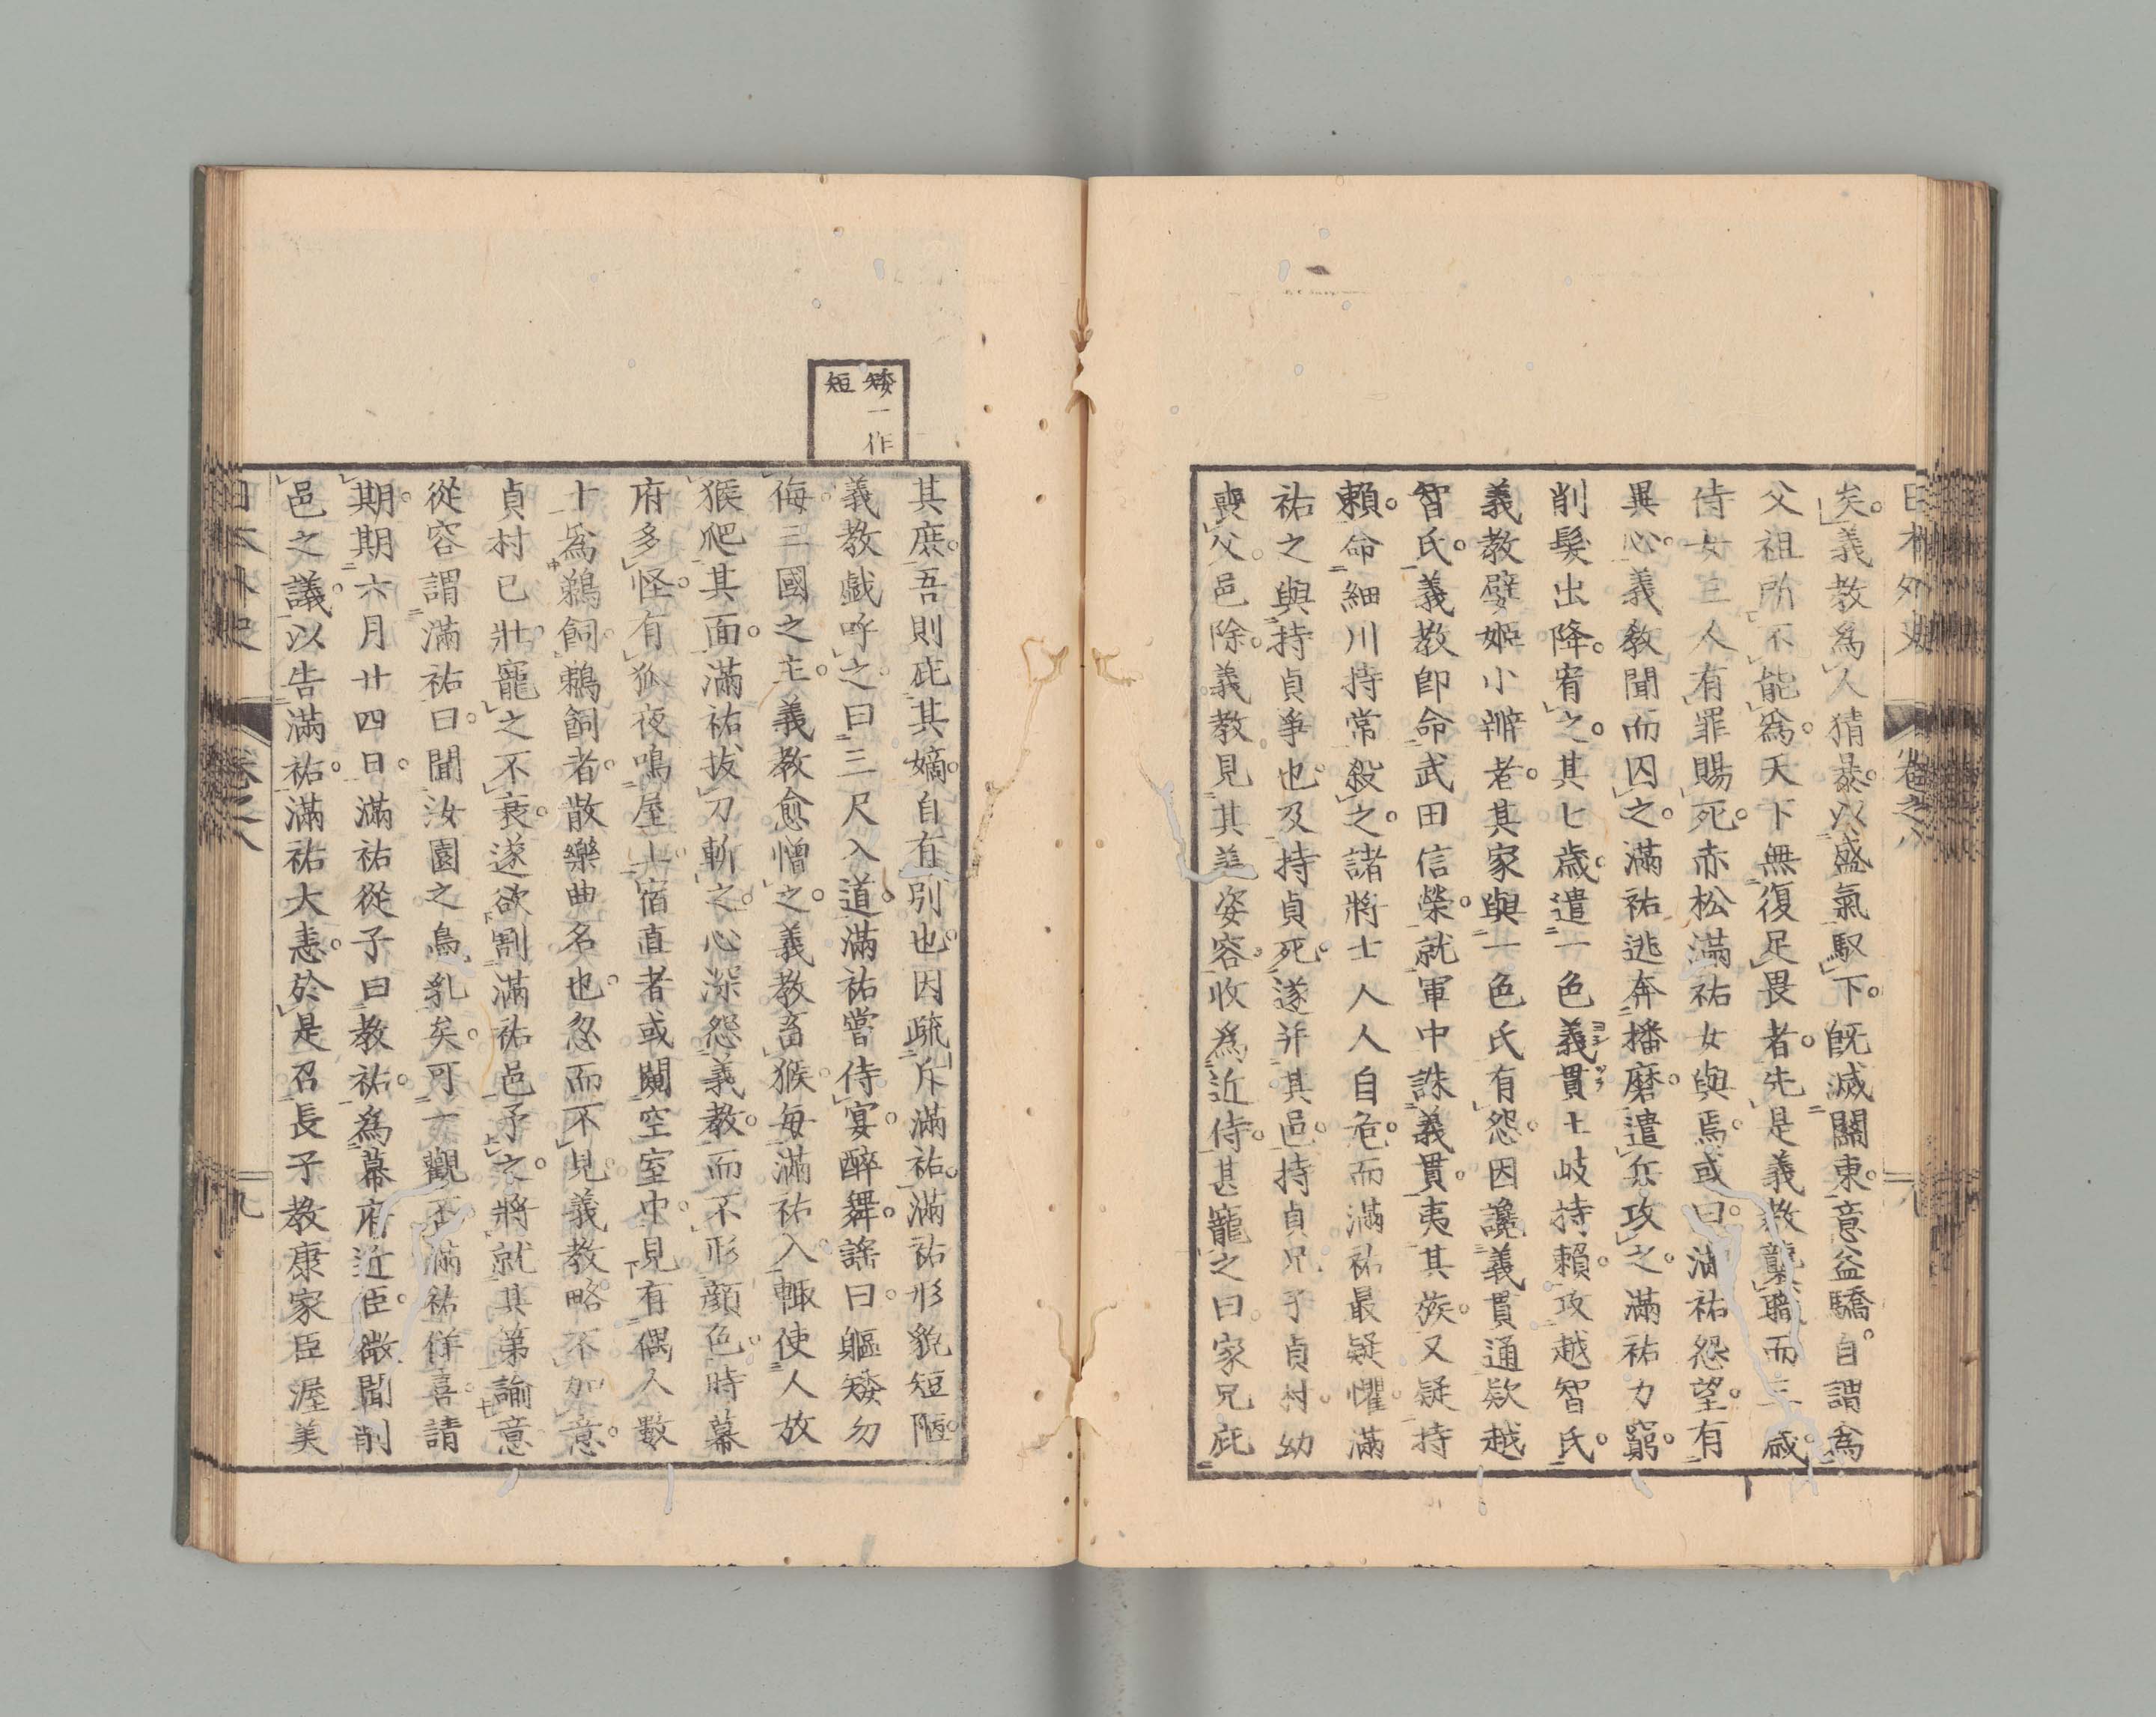 日本外史 卷之八
矣。義教為人猜暴。以盛氣馭下。既滅關東。意益驕。自謂為
父祖所不能為。天下無復足畏者。先是義教襲職而三歲。
侍女三人有罪賜死。赤松滿祐女與焉。或曰。滿祐怨望。有
異心。義教聞而囚之。滿祐逃奔播磨。遣兵攻之。滿祐力窮。
削髮出降。宥之。其七歲。遣一色義貫土岐持賴。攻越智氏。
義教嬖姬小辨者。其家與一色氏有怨。因讒義貫通款越
智氏。義教即命武田信榮。就軍中誅義貫。夷其族。又疑持
賴。命細川持常殺之。諸將士人人自危。而滿祐最疑懼。滿
祐之與持貞爭也。及持貞死。遂并其邑。持貞兄子貞村。幼
喪父。邑除。義教見其美姿容。收為近侍。甚寵之曰。家兄庇
其庶。吾則庇其嫡。自有別也。因疏斥滿祐。滿祐形貌短陋。
義教戲呼之曰三尺入道。滿祐嘗侍宴。醉舞。謠曰。軀矮勿
侮三國之主。義教愈憎之。義教畜猴。每滿祐入。輙使人放
猴爬其面。滿祐拔刀斬之。心深怨義教。而不形顏色。時幕
府多怪。有狐夜鳴屋上。宿直者或闚空室中。見有偶人數
十為鵜飼。鵜飼者。散樂曲名也。忽而不見。義教略不加意。
貞村已壯。寵之不衰。遂欲割滿祐邑予之。將就其第諭意。
從容謂滿祐曰。聞汝園之鳧乳矣。可一觀否。滿祐佯喜。請
期。期六月廿四日。滿祐從子曰教祐。為幕府近臣。微聞削
邑之議。以告滿祐。滿祐大恚。於是召長子教康家臣渥美
矮一作
短
日本外史 卷之八 九